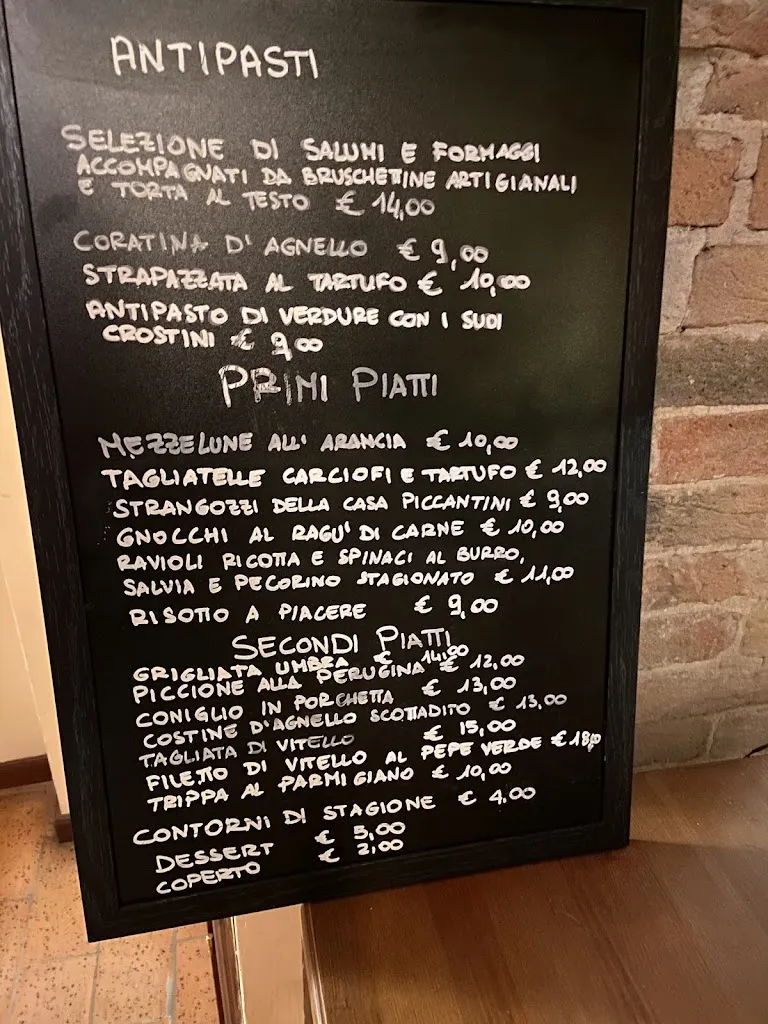 ANTIPASTI
SELEZIONE DI SALUMI E FORMAGGI
ACCOMPAGNATI DA BRUSCHETINE ARTIGIANALI
E TORTA AL TESTO € 14,00
CORATINA D'AGNELLO € 9,00
STRAPAZZATA AL TARTUFO € 10,00
ANTIPASTO DI VERDURE CON I SUOI
CROSTINI € 9,00
PRIMI PIATTI
MEZZELUNE ALL' ARANCIA € 10,00
TAGLIATELLE CARCIOFI E TARTUFO € 12,00
STRANGOZZI DELLA CASA PICCANTINI € 9,00
GNOCCHI AL RAGU' DI CARNE € 10,00
RAVIOLI RICOTTA E SPINACI AL BURRO,
SALVIA E PECORINO STAGIONATO € 11,00
RISOTTO A PIACERE € 9,00
SECONDI PIATTI
GRIGLIATA UMBRA € 14,00
PICCIONE ALLA PERUGINA € 12,00
CONIGLIO IN PORCHETTA € 13,00
COSTINE D'AGNELLO SCOTTADITO € 13,00
TAGLIATA DI VITELLO € 15,00
FILETTO DI VITELLO AL PEPE VERDE € 18,00
TRIPPA AL PARMIGIANO € 10,00
CONTORNI DI STAGIONE € 4,00
DESSERT € 5,00
COPERTO € 2,00